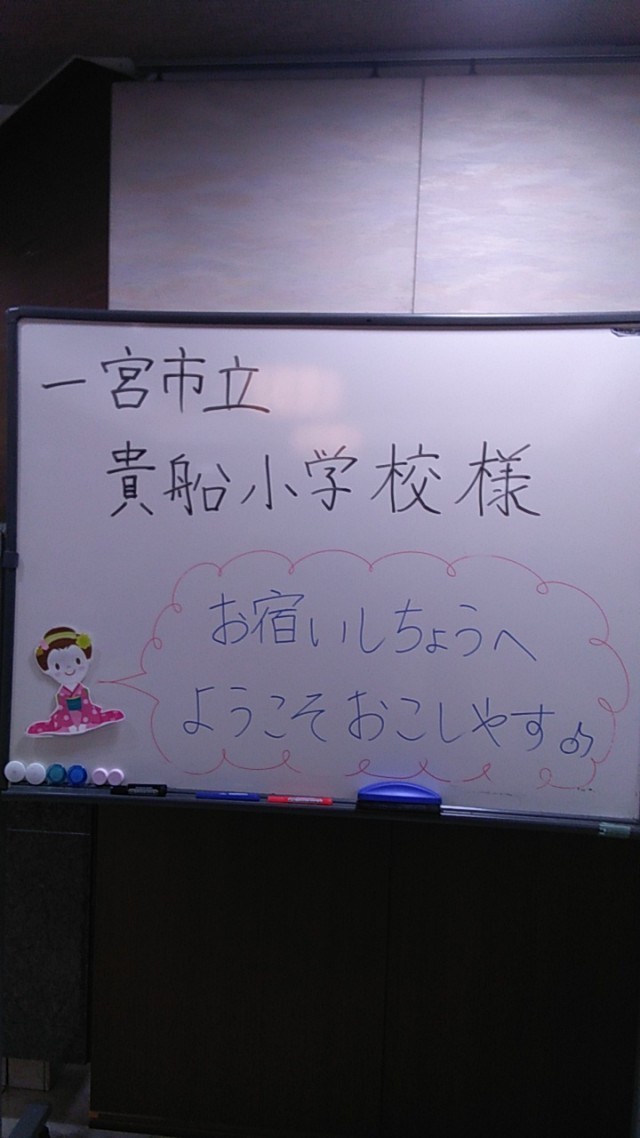 一宮市立
貴船小学校様
お宿いしちょうへ
ようこそおこしやす♪